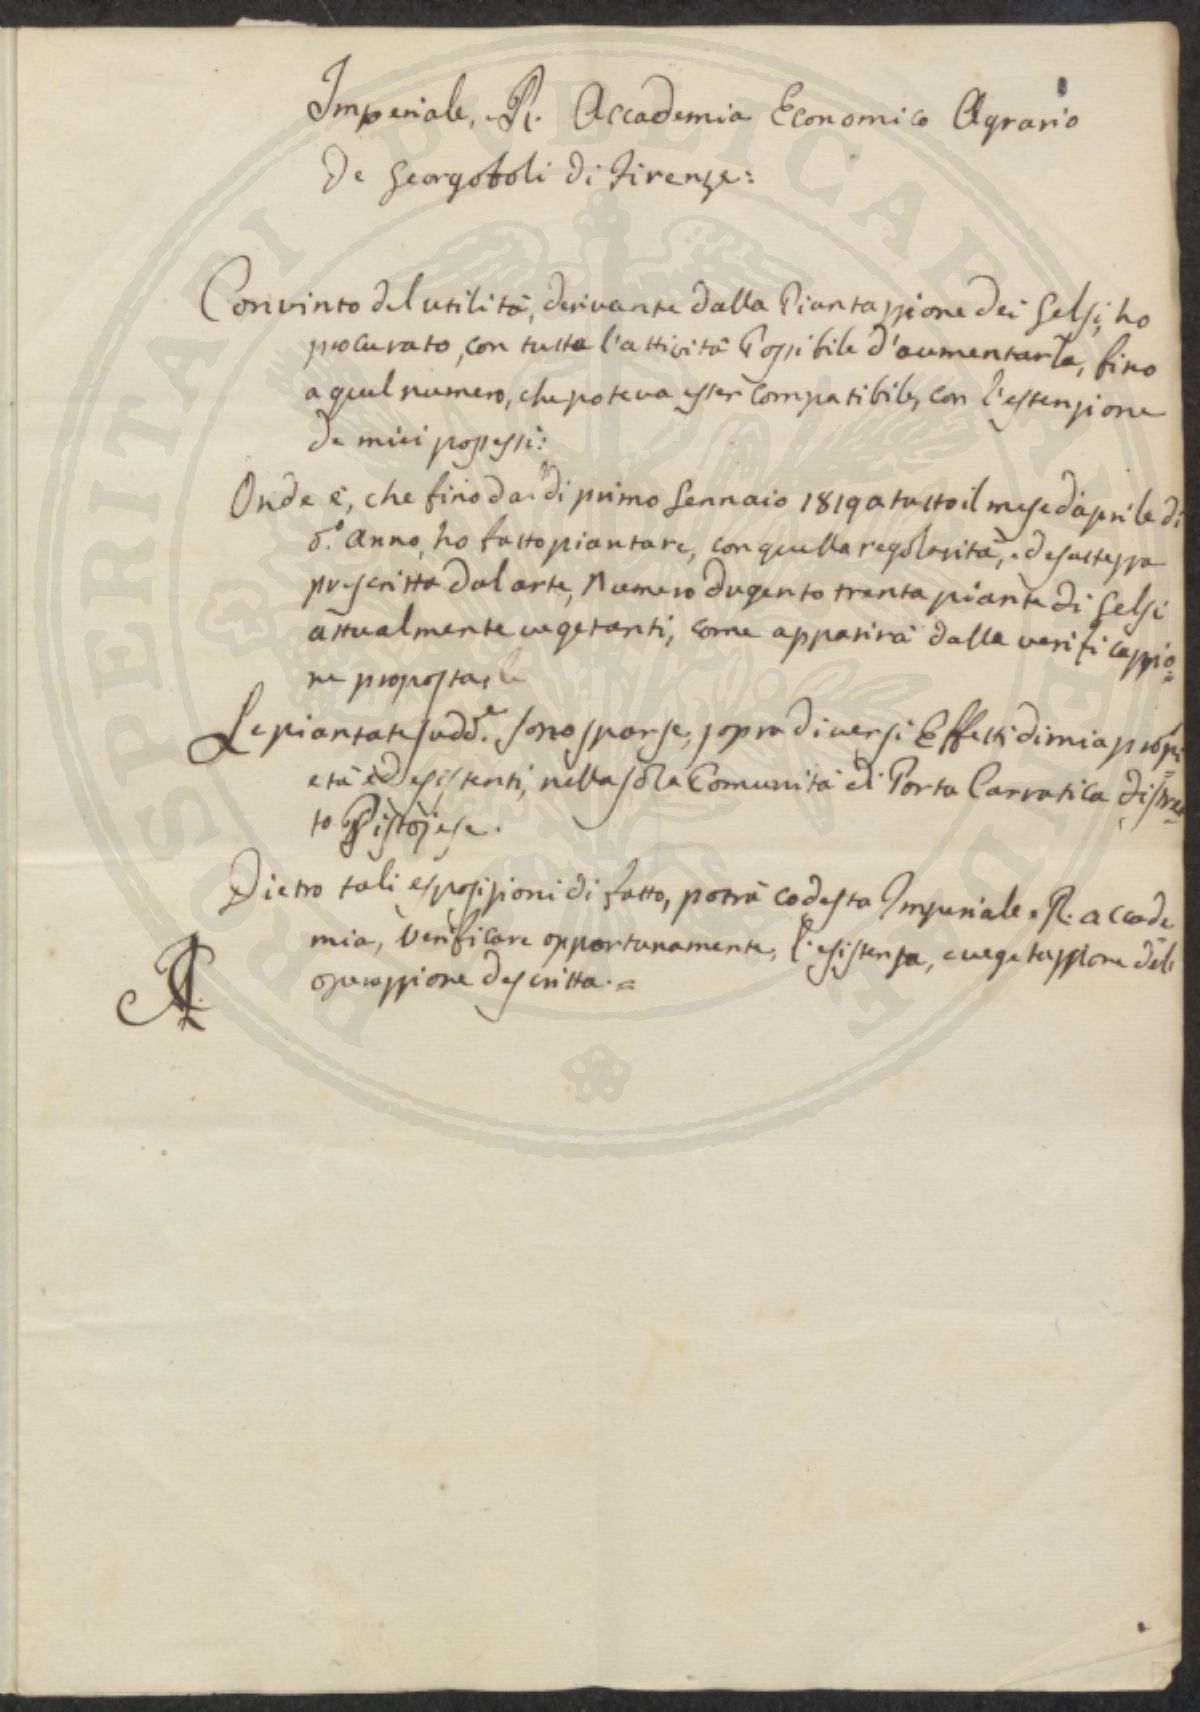 Imperiale, e R. Accademia Economico Agrario
De Georgofoli di Firenze:
Convinto del utilità, derivante dalla Piantazzione dei Gelsi, ho
procurato, con tutta l'attività Possibile d'aumentarla, fino
a quel numero, che poteva esser Compatibile, con l'estenzione
de miei possessi:
Onde è, che fino dal dì primo Gennaio 1819 a tutto il mese d'aprile di
d.o Anno, ho fatto piantare, con quella regolarità, ed esattezza
prescritta dal arte, Numero dugento trenta piante di Gelsi
attualmente vegetanti, come apparirà dalla verificazzio=
ne proposta,
Le piantate sudd.e sono sparse, sopra diversi Effetti di mia propri=
età ed esistenti, nella sola Comunità di Porta Carratica distret=
to Pistojese.
Dietro tali esposizioni di fatto, potrà codesta Imperiale e R. accade
mia, Verificare opportunamente, l'esistenza, e vegetazzione dell
operazzione descritta. =
PROSPERITATI PUBLICAE AUGENDAE